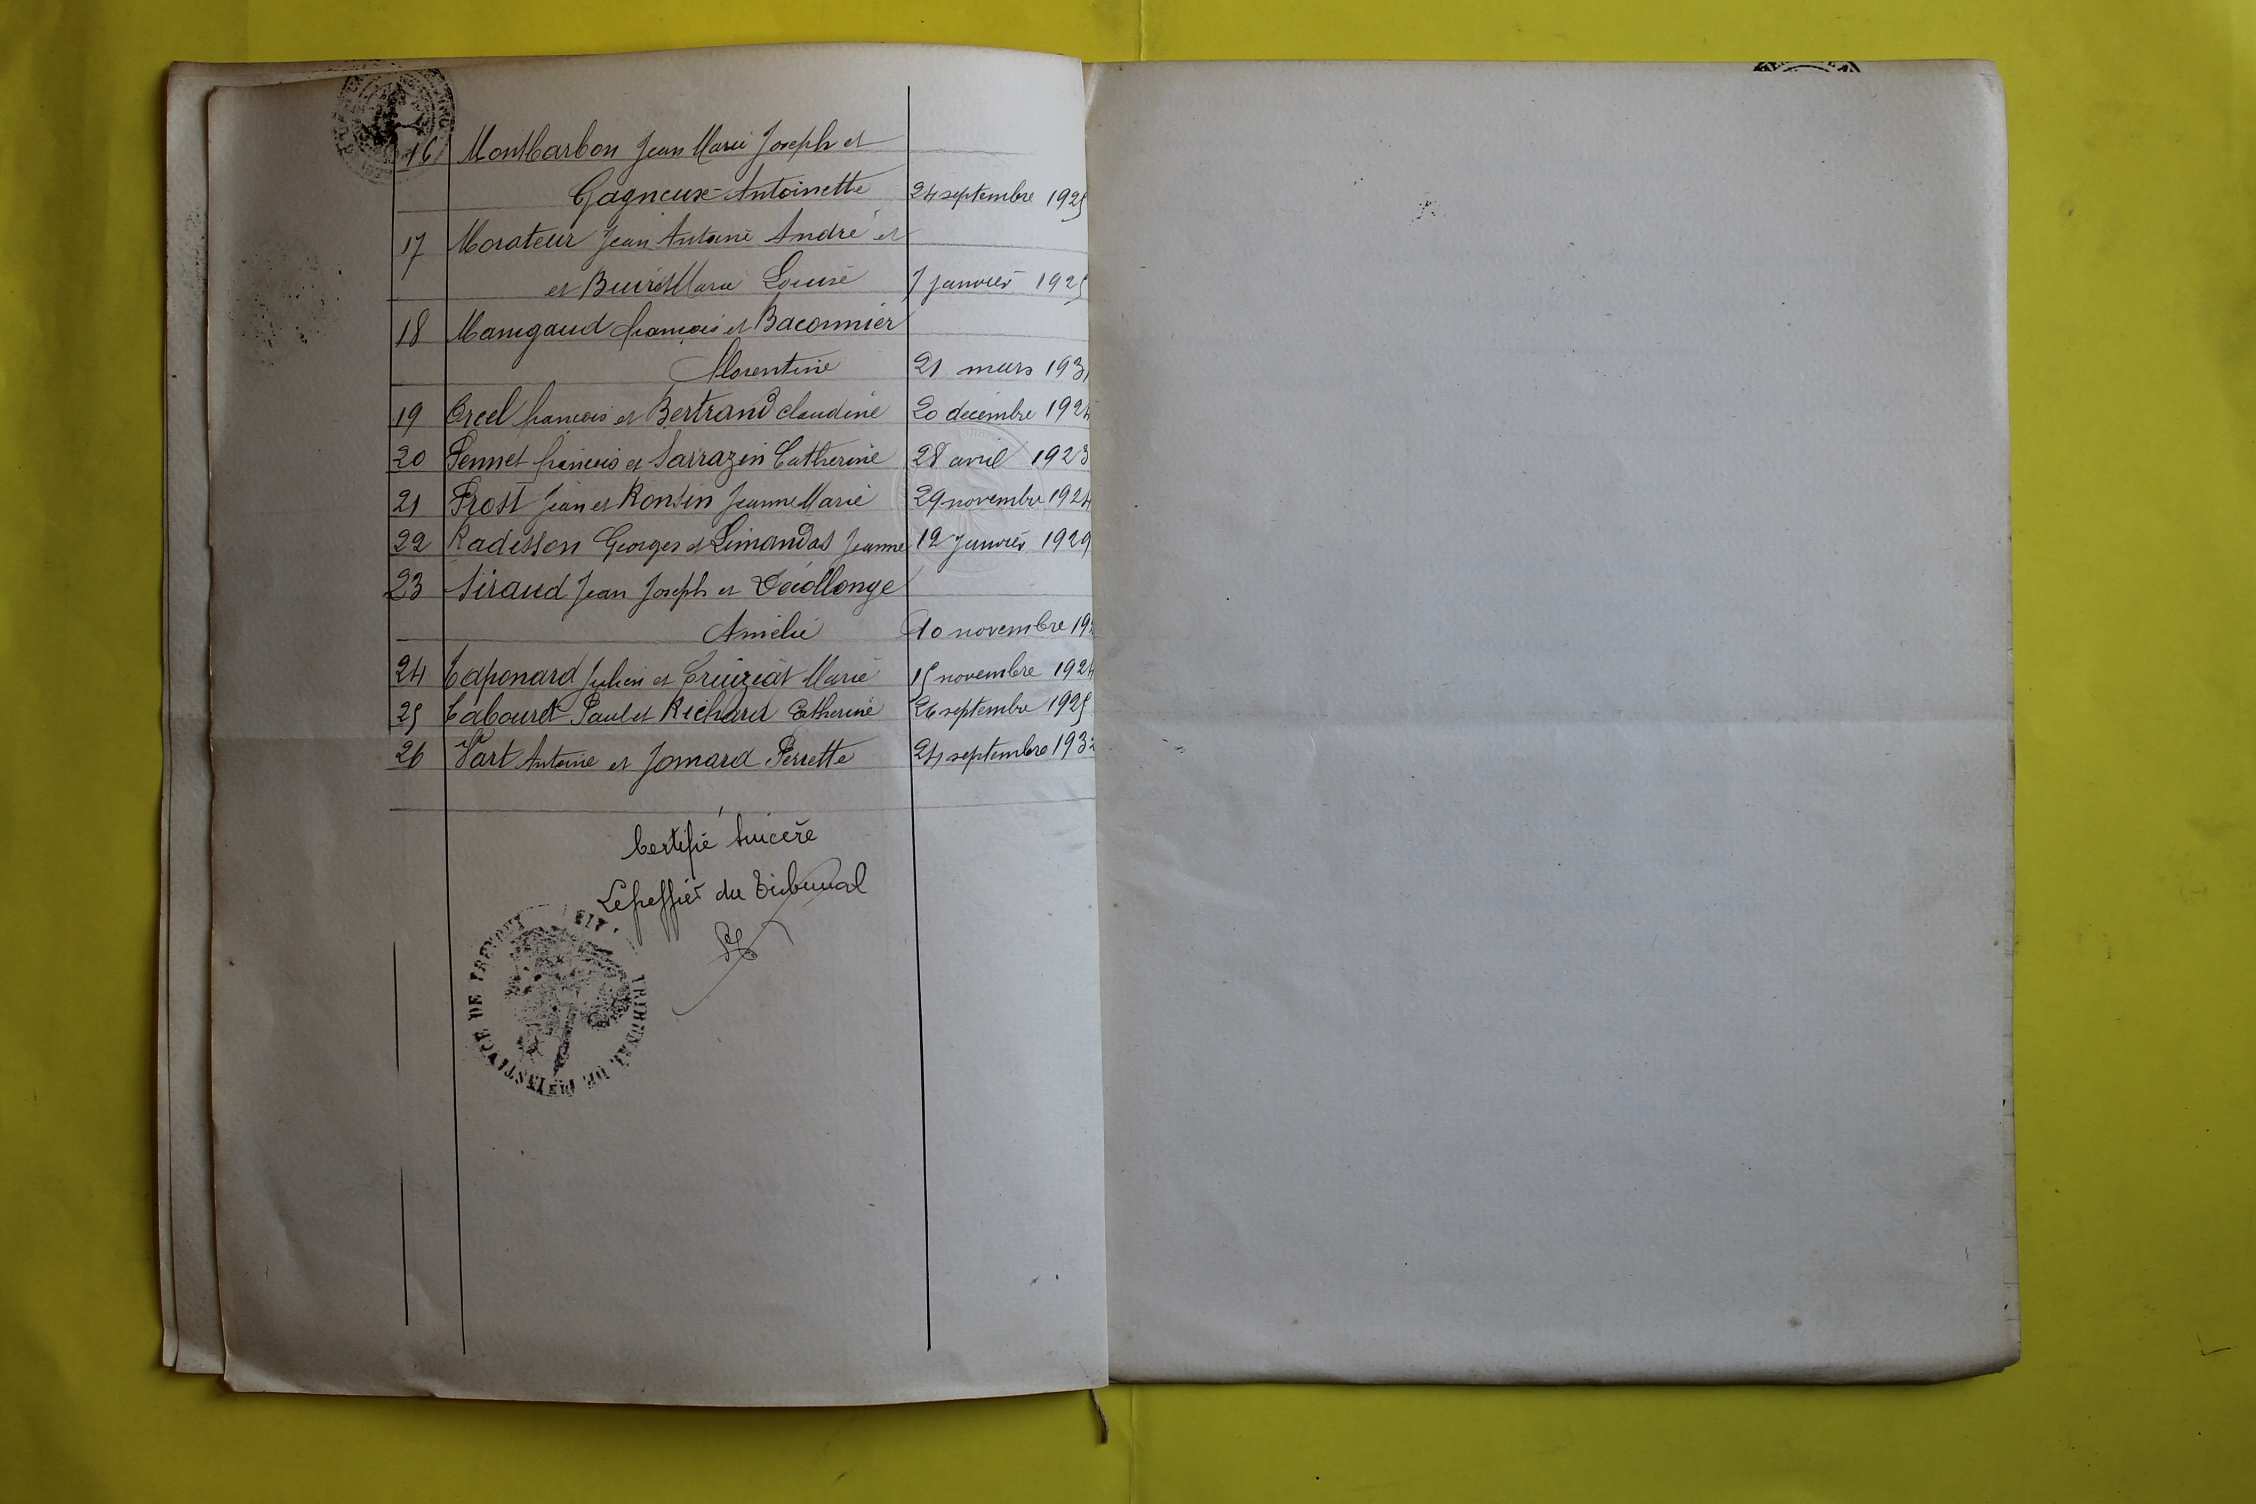 16 Montbarbon Jean Marie Joseph et
Gagneux Antoinette 24 septembre 1925
17 Morateur Jean Antoine André et
et Marie Louise 7 Janvier 1925
18 Manigaud françois et Baconnier
Florentine 21 mars 193
19 Orcel françois et Bertrand Claudine 20 décembre 1924
20 Pennet françois et Sarrazin Catherine 28 avril 1923
21 Prost Jean et Jeanne Marie 29 novembre 1924
22 Radisson Georges et Limandas Jeanne 12 Janvier 1929
23 Siraud Jean Joseph et
Amélie 10 novembre 19
24 Taponard Julien et Cruiziat Marie 15 novembre 1924
25 Tabouret Paul et Richard Catherine 26 septembre 1925
26 Vart Antoine et Jomard Perrette 24 septembre 193
Certifié sincère
Le greffier du Tribunal
TRIBUNAL DE INSTANCE DE TREVOUX